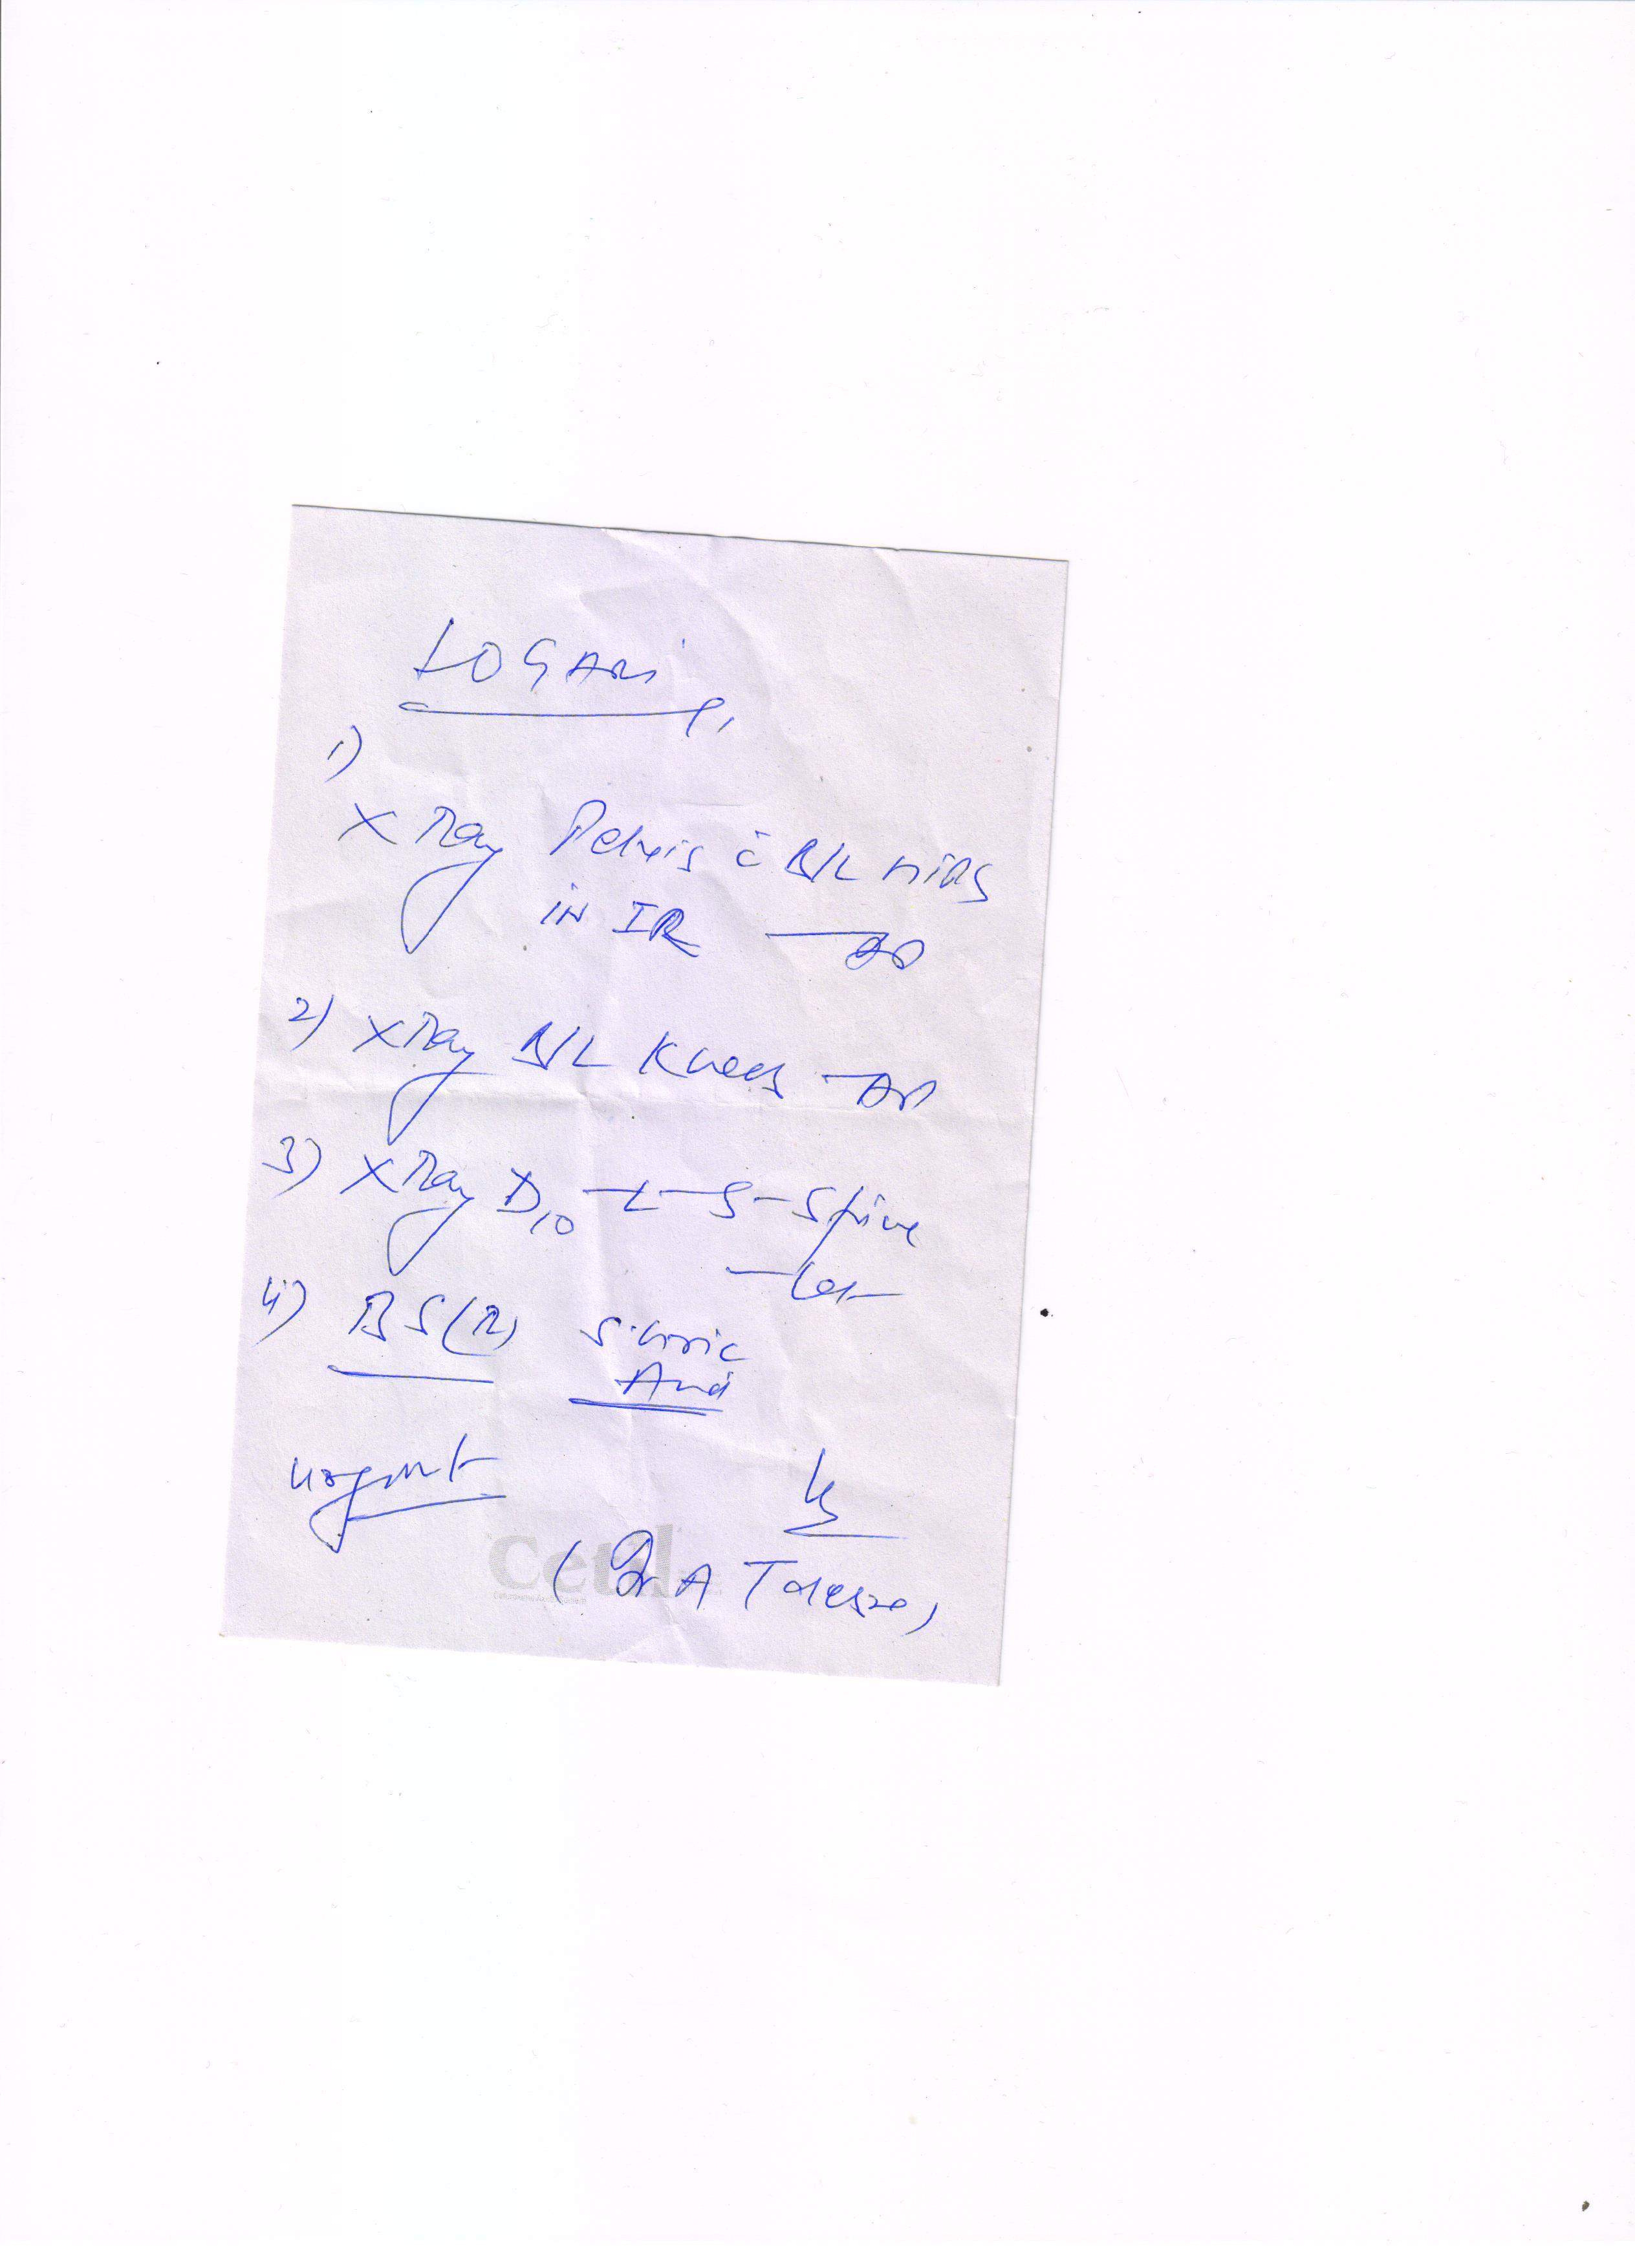 LOGANi
1)
X Ray Pelvis c̄ B/L HiPs
in IR — AP
2) X Ray B/L Knees — AP
3) X Ray D10 - L - S - Spine
— Lat
4) BS(R) S. Uric
Acid
Urgent
Cetil
(Dr A